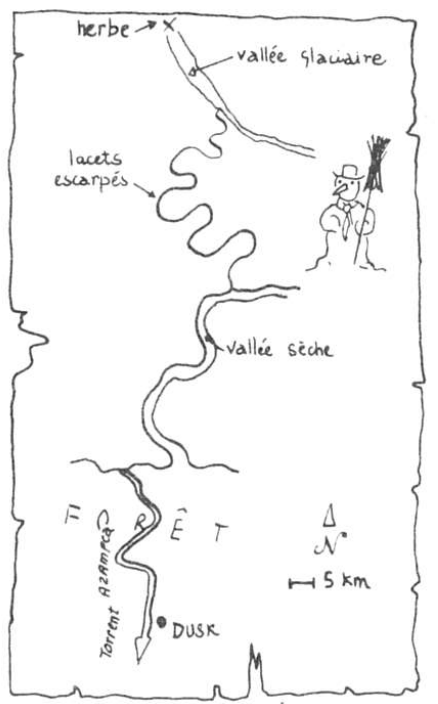 herbe
vallée glaciaire
lacets
escarpés
vallée sèche
F O R Ê T
N
5 km
Torrent AZAMPCA
DUSK